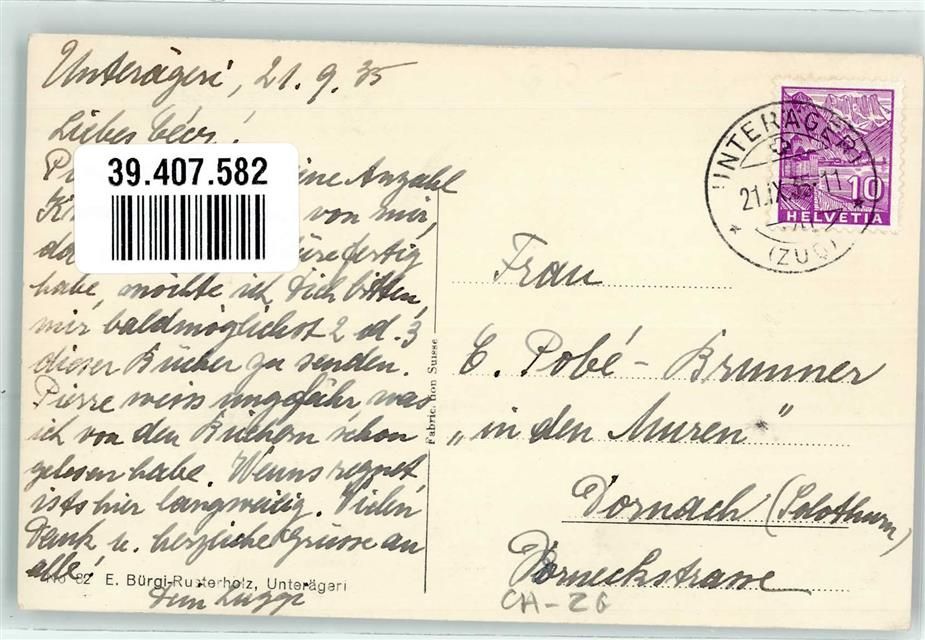 Unterägeri, 21.9.35
Liebes
39.407.582
eine Anzahl
von mir,
habe, möchte ich Dich bitten,
mir baldmöglichst 2 od. 3
dieser Bücher zu senden.
Pierre weiss ungefähr was
ich von den Büchern schon
gelesen habe. Wenns regnet
ists hier langweilig. Vielen
Dank u. herzliche Grüsse an
alle!
No 82 E. Bürgi-Rusterholz, Unterägeri
Dein
Fabrication Suisse
UNTERÄGERI
21.IX.35.11
(ZUG)
10
HELVETIA
Frau
E. Pobé-Brunner
„in den Muren"
Dornach (Solothurn)
Dorneckstrasse
CH-ZG